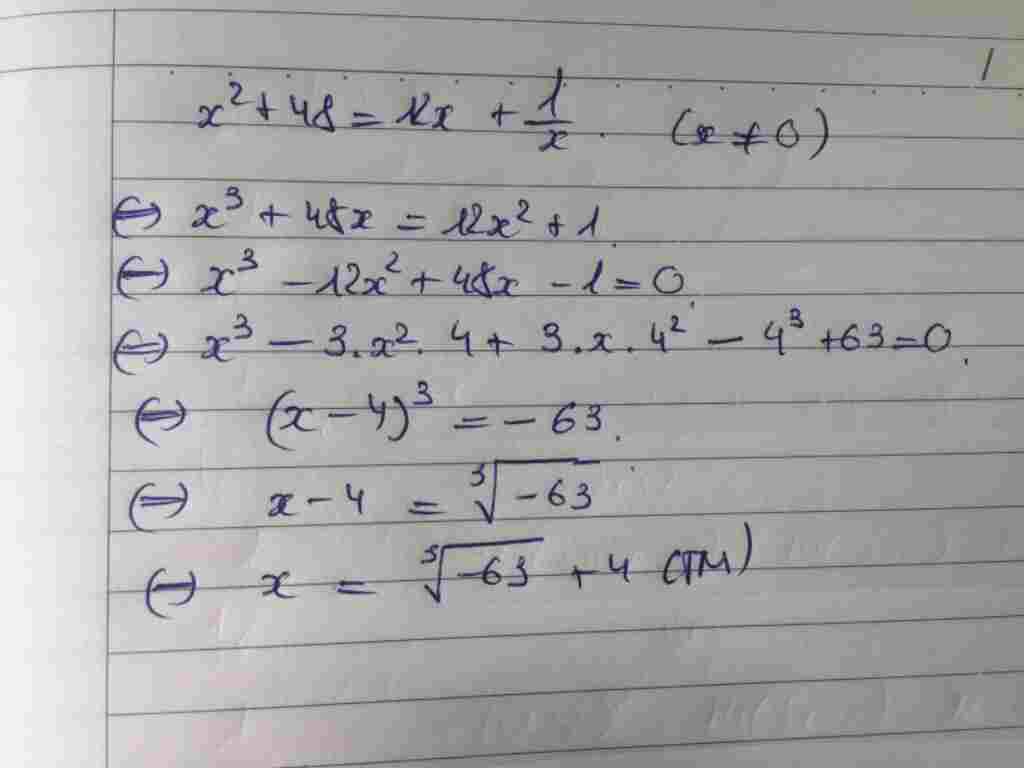 x² + 48 = 12x + 1/x. (x ≠ 0)
⇔ x³ + 48x = 12x² + 1.
⇔ x³ - 12x² + 48x - 1 = 0.
⇔ x³ - 3.x².4 + 3.x.4² - 4³ + 63 = 0.
⇔ (x - 4)³ = - 63.
⇔ x - 4 = ∛(-63)
⇔ x = ∛(-63) + 4 (TM)